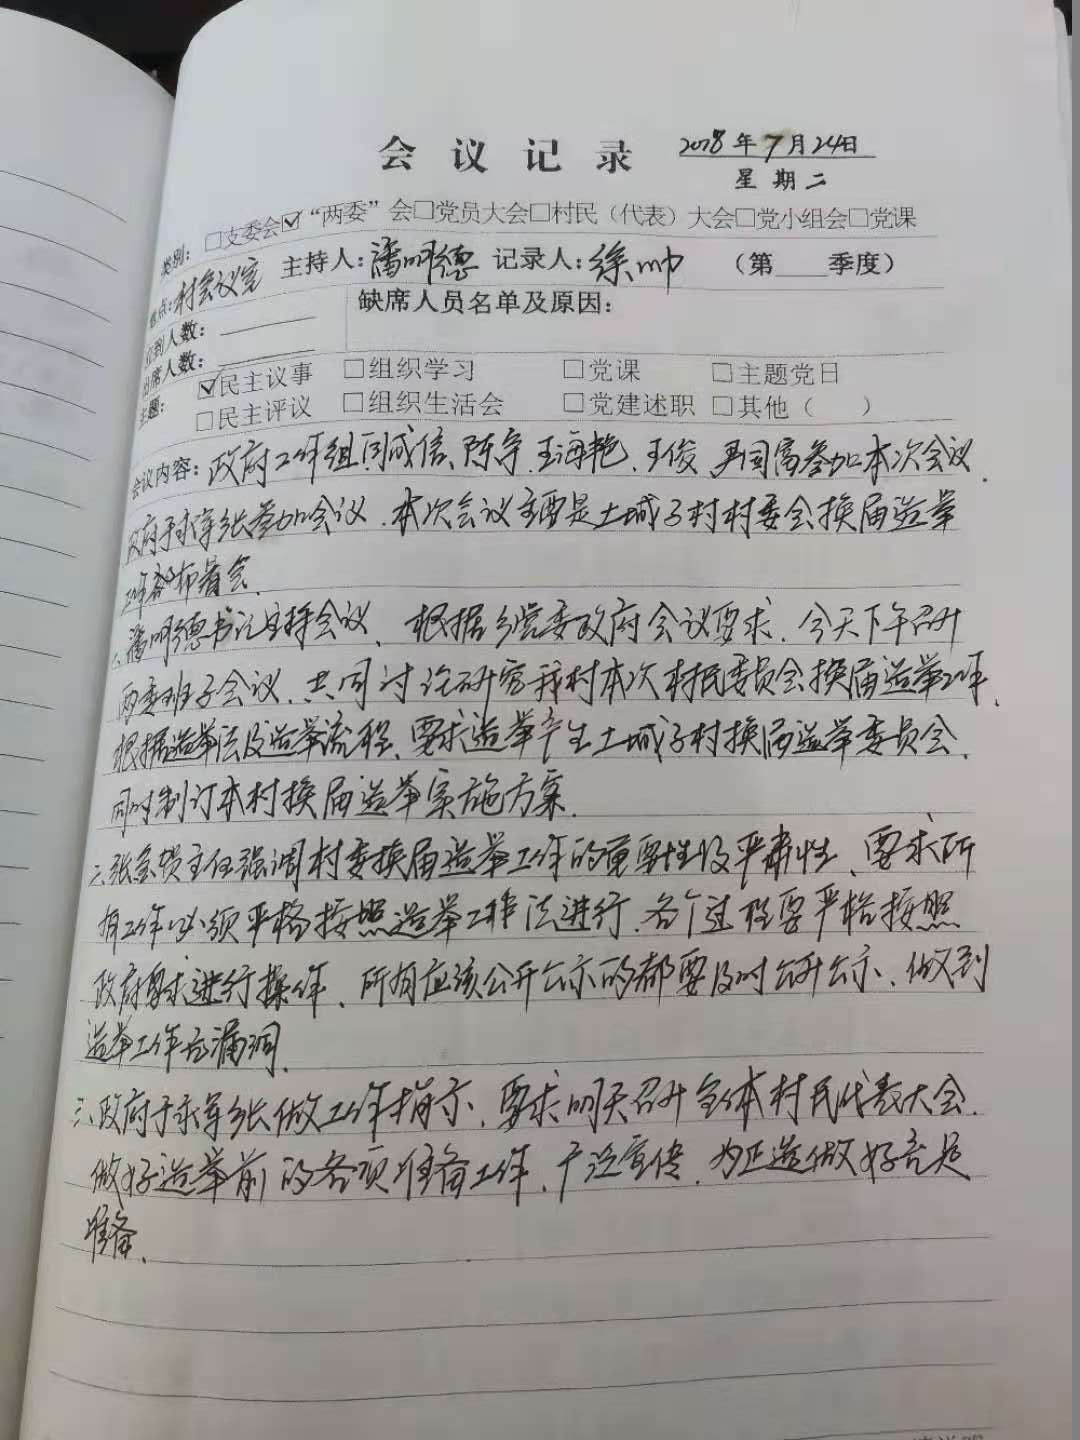 会议记录 2018年7月24日
星期二
类别: □支委会☑“两委”会□党员大会□村民（代表）大会□党小组会□党课
地点:村会议室 主持人:潘明德 记录人:徐帅 （第 季度）
应到人数: 缺席人员名单及原因:
出席人数:
主题: ☑民主议事 □组织学习 □党课 □主题党日
□民主评议 □组织生活会 □党建述职 □其他（ ）
会议内容:政府工作组闫成信、陈宇、王海艳、王俊、尹国富参加本次会议.
政府于永军乡长参加会议.本次会议主要是土城子村村委会换届选举
工作布署会.
一、潘明德书记主持会议、根据乡党委政府会议要求.今天下午召开
两委班子会议.共同讨论研究我村本次村民委员会换届选举工作.
根据选举法及选举流程、要求选举产生土城子村换届选举委员会.
同时制订本村换届选举实施方案.
二、张主任强调村委换届选举工作的重要性及严肃性、要求所
有工作必须严格按照选举工作法进行.各个过程要严格按照
政府要求进行操作、所有应该公开公示的都要及时公开公示、做到
选举工作无漏洞.
三、政府于永军乡长做工作指示、要求明天召开全体村民代表大会.
做好选举前的各项准备工作、广泛宣传.为正选做好充足
准备.